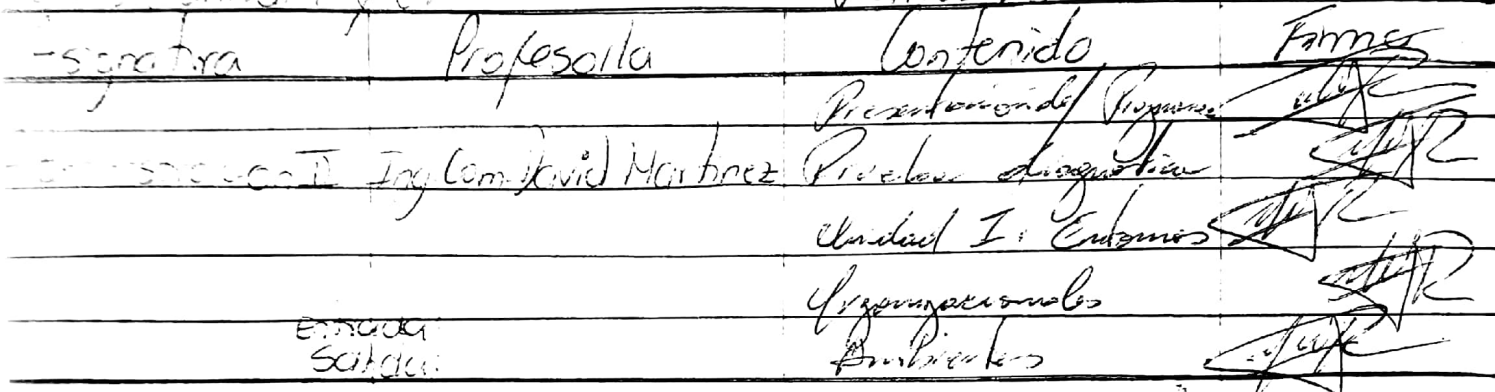 Profesor/a Contenido Firma
Presentación del Programa
II Ing Com David Martinez Prueba diagnóstica
Unidad I: Entornos
Organizacionales
Entrada:
Salida: Ambientes